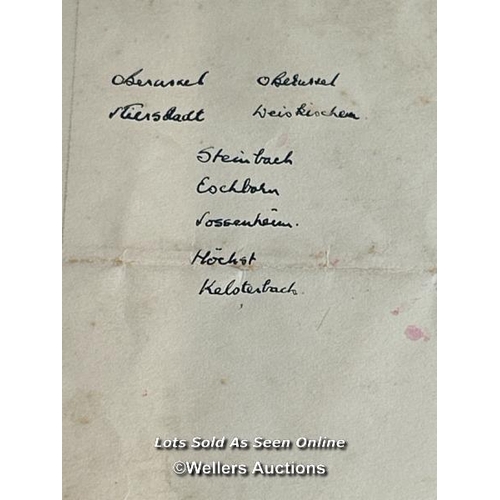 Oberursel Oberursel
Stierstadt Weiskirchen.
Steinbach
Eschborn
Sossenheim.
Höchst
Kelsterbach
Lots Sold As Seen Online
©Wellers Auctions